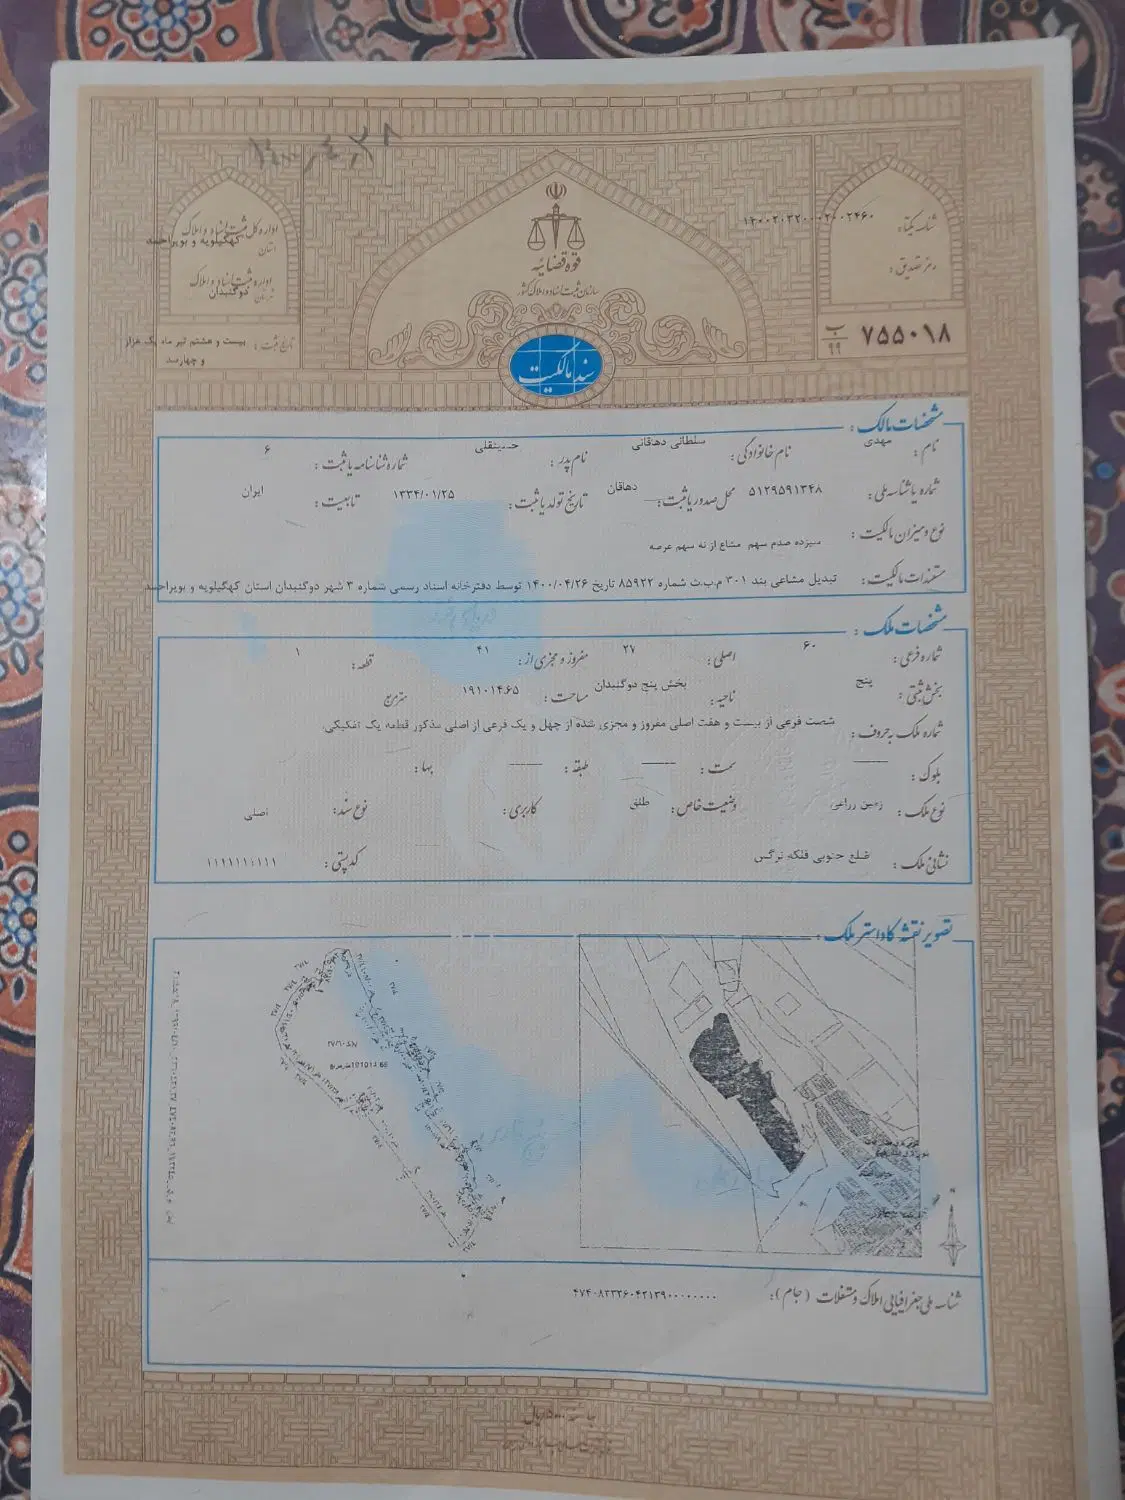 ۱۴۰۰٫۴٫۲۸
شناسه یکتا: ۱۴۰۰۲۰۳۲۰۰۰۲۰۰۲۴۶۰
رمز تصدیق:
اداره کل ثبت اسناد و املاک
استان کهگیلویه و بویراحمد
اداره ثبت اسناد و املاک
شهرستان دوگنبدان
قوه قضائیه
سازمان ثبت اسناد و املاک کشور
۷۵۵۰۱۸ ب/۹۹
تاریخ ثبت: بیست و هشتم تیر ماه یک هزار
و چهارصد
سند مالکیت
مشخصات مالک:
نام: مهدی نام خانوادگی: سلطانی دهاقانی نام پدر: حسینقلی شماره شناسنامه یا ثبت: ۶
شماره یا شناسه ملی: ۵۱۲۹۵۹۱۳۴۸ محل صدور یا ثبت: دهاقان تاریخ تولد یا ثبت: ۱۳۳۴/۰۱/۲۵ تابعیت: ایران
نوع و میزان مالکیت: سیزده صدم سهم مشاع از نه سهم عرصه
مستندات مالکیت: تبدیل مشاعی بند ۳۰۱ م.ب.ث شماره ۸۵۹۲۲ تاریخ ۱۴۰۰/۰۴/۲۶ توسط دفترخانه اسناد رسمی شماره ۳ شهر دوگنبدان استان کهگیلویه و بویراحمد
مشخصات ملک:
شماره فرعی: ۶۰ اصلی: ۲۷ مفروز و مجزی از: ۴۱ قطعه: ۱
بخش ثبتی: پنج ناحیه: بخش پنج دوگنبدان مساحت: ۱۹۱۰۱۴.۶۵ متر مربع
شماره ملک به حروف: شصت فرعی از بیست و هفت اصلی مفروز و مجزی شده از چهل و یک فرعی از اصلی مذکور قطعه یک تفکیکی.
بلوک: سمت: طبقه: بها:
نوع ملک: زمین زراعی وضعیت خاص: طلق کاربری: نوع سند: اصلی
نشانی ملک: ضلع جنوبی فلکه نرگس کد پستی: ۱۱۱۱۱۱۱۱۱۱
تصویر نقشه کاداستر ملک:
شناسه ملی جغرافیایی املاک و مستغلات (جام): ۴۷۴۰۸۳۳۲۶۰۴۲۱۳۹۰۰۰۰۰۰۰۰۰